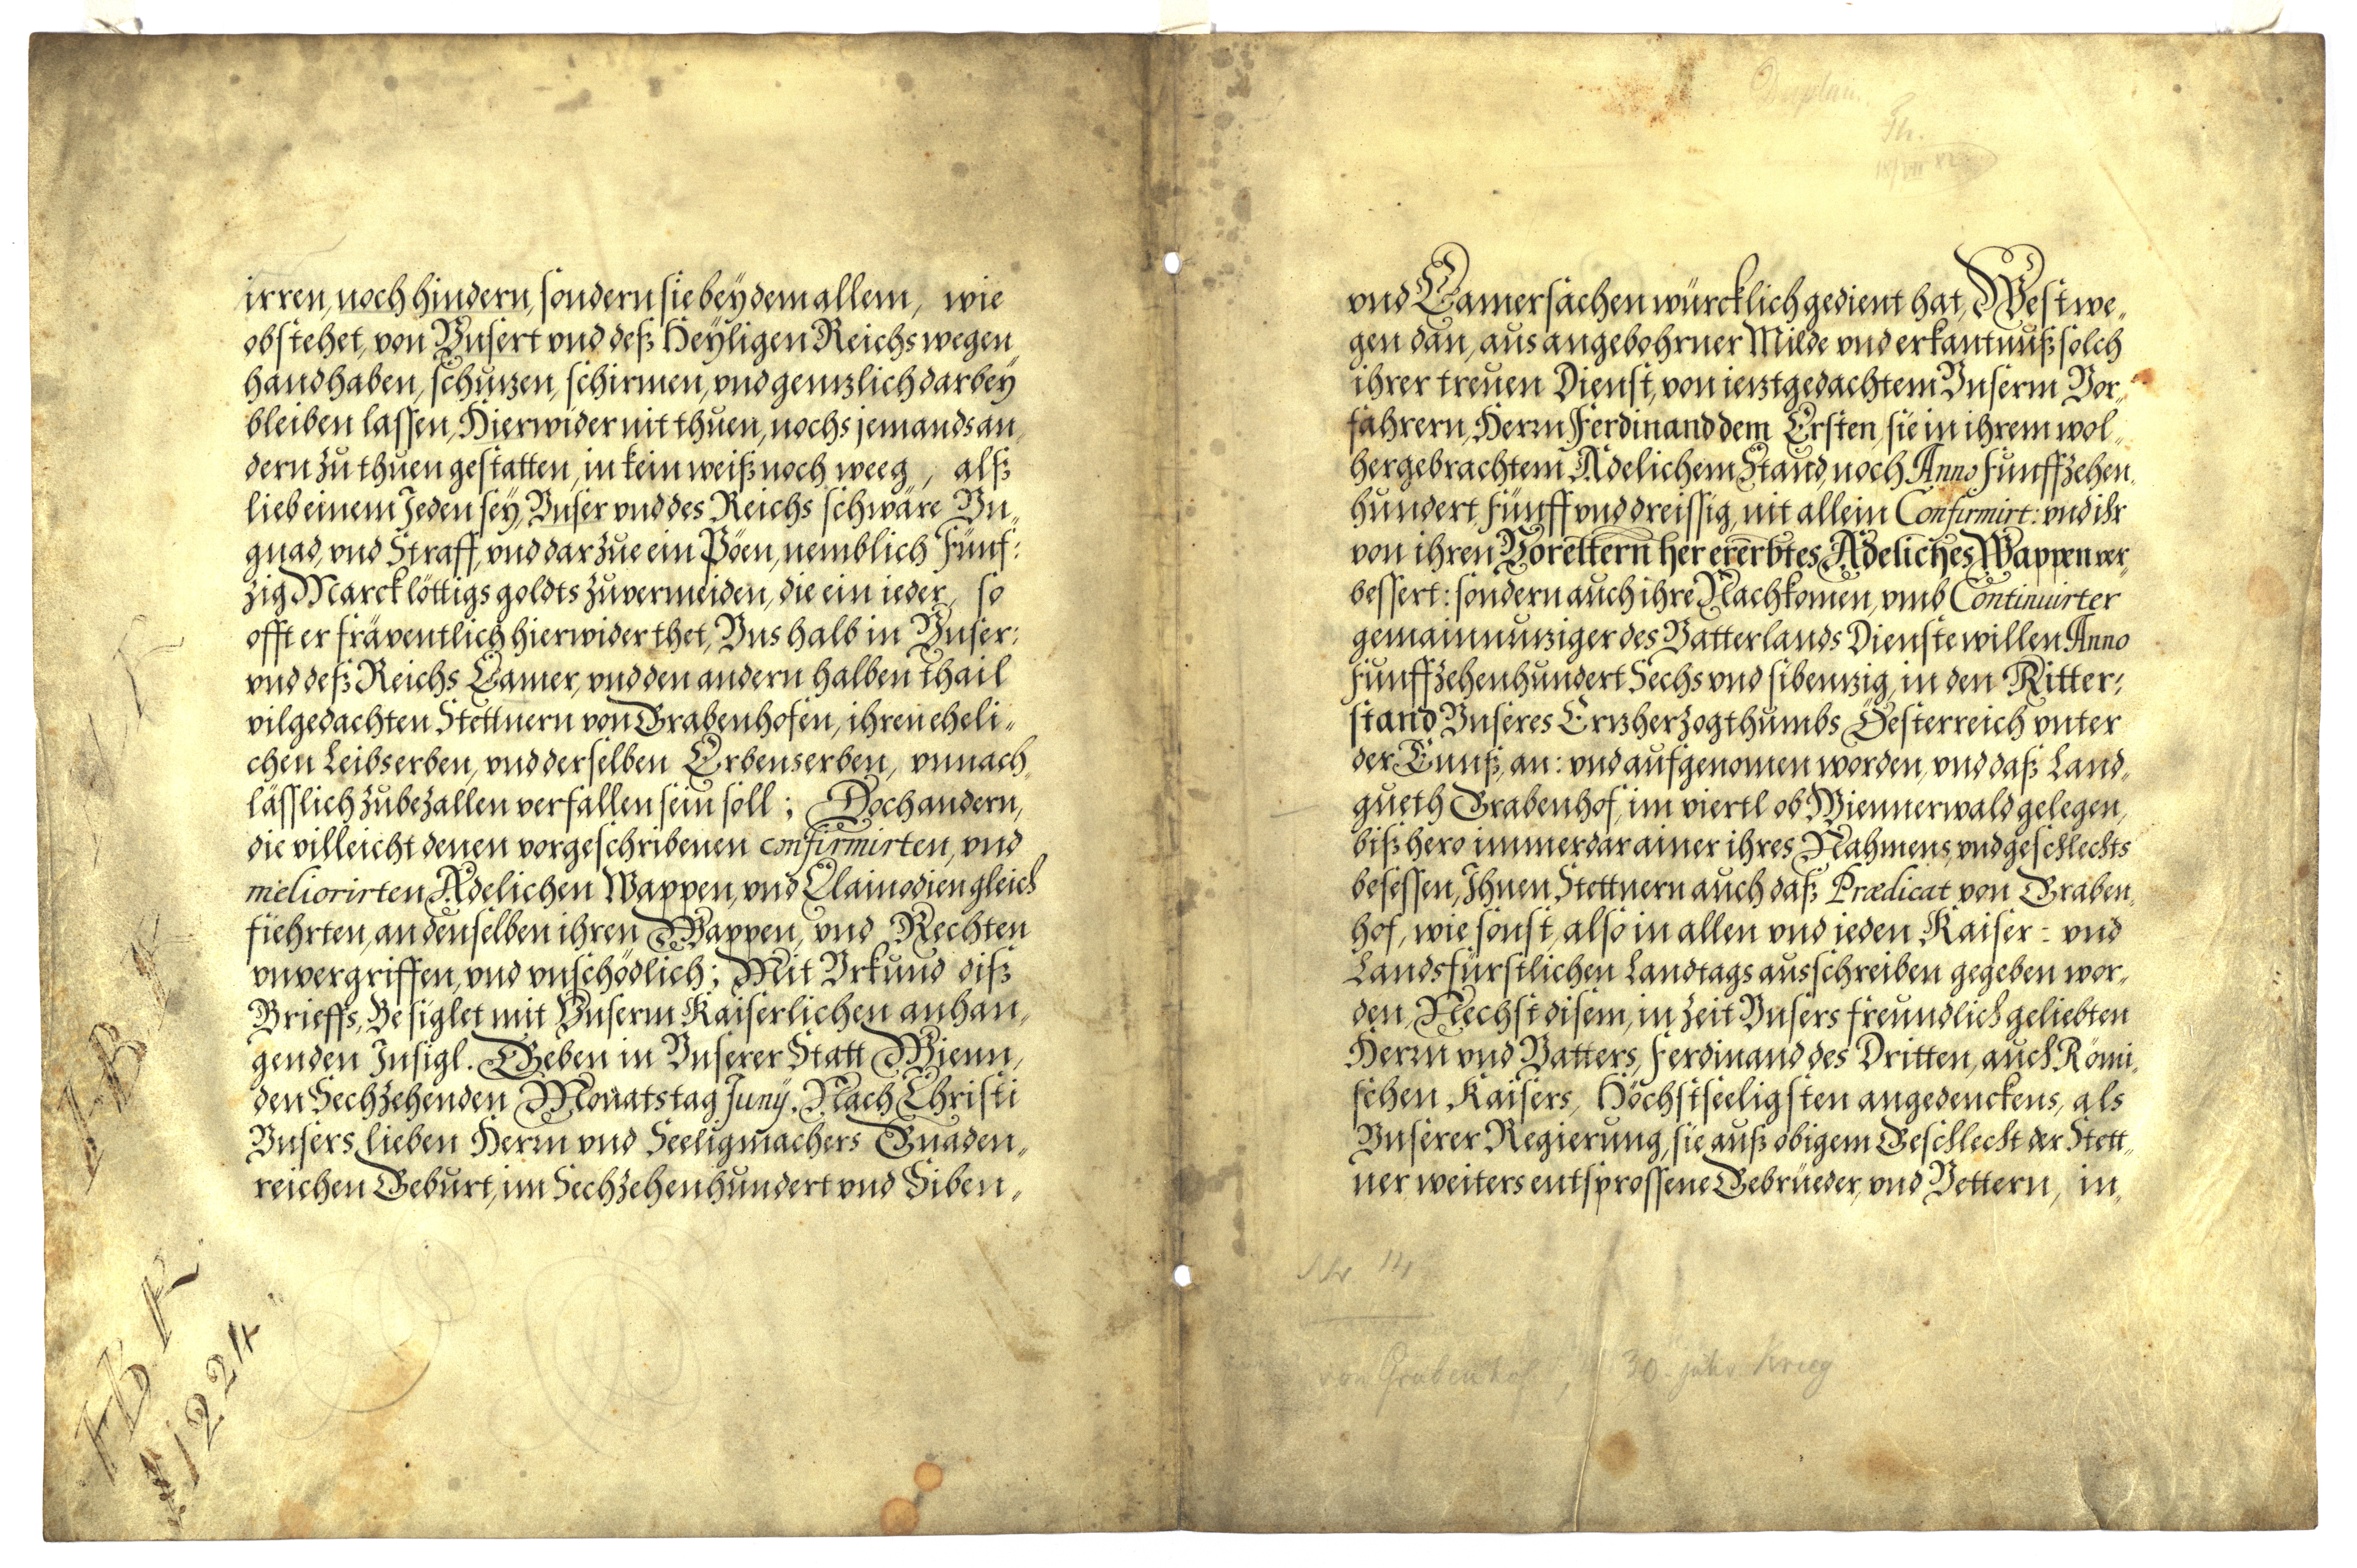 irren, noch hindern, sondern sie bey dem allem, wie
obstehet, von Vnsert vnd deß Heÿligen Reichs wegen
handhaben, schuzen, schirmen, vnd genzlich darbeÿ
bleiben lassen, Hierwider nit thuen, nochs jemands an„
dern zu thuen gestatten, in kein weiß noch weeg, alß
lieb einem Jeden seÿ, Vnser vnd des Reichs schwäre Vn„
gnad, vnd Straff, vnd darzue ein Pöen, nemblich Fünf:
zig Marck löttigs goldts zuvermeiden, die ein ieder, so
offt er fräventlich hierwider thet, Vns halb in Vnser:
vnd deß Reichs Camer, vnd den andern halben thail
vilgedachten Stettnern von Grabenhofen, ihren eheli„
chen Leibserben, vnd derselben Erbenserben, vnnach„
lässlich zubezallen verfallen sein soll; Doch andern,
die villeicht denen vorgeschribenen confirmirten, vnd
meliorirten Adelichen Wappen, vnd Clainodien gleich
fiehrten, an denselben ihren Wappen, vnd Rechten
vnvergriffen, vnd vnschödlich; Mit Vrkund diß
Brieffs, Besiglet mit Vnserm Kaiserlichen anhan„
genden Insigl. Geben in Vnserer Statt Wienn,
den Sechzehenden Monatstag Junÿ. Nach Christi
Vnsers lieben Herrn vnd Seeligmachers Gnaden„
reichen Geburt, im Sechzehenhundert vnd Siben„
FBK
1224
vnd Camersachen würcklich gedient hat, Westwe„
gen dan, aus angebohrner Milde vnd erkantnuß solch
ihrer treuen Dienst, von ieztgedachtem Vnserm Vor„
fahrern, Herrn Ferdinand dem Ersten, sie in ihrem wol„
hergebrachtem Adelichem Stand, noch Anno Funffzehen„
hundert Fünff vnd dreissig, nit allein Confirmirt: vnd ihr
von ihren Vorelttern her ererbtes Adeliches Wappen ver„
bessert: sondern auch ihre Nachkomen, vmb Continuirter
gemainnuziger des Vatterlands Dienste willen Anno
Funffzehenhundert Sechs vnd sibenzig, in den Ritter:
stand Vnseres Erzherzogthumbs Öesterreich vnter
der Ennß, an: vnd aufgenomen worden, vnd daß Land„
gueth Grabenhof, im viertl ob Wiennerwald gelegen,
bißhero immerdar ainer ihres Nahmens, vnd geschlechts
besessen, Ihnen Stettnern auch daß Prædicat von Graben„
hof, wie sonst, also in allen vnd ieden Kaiser: vnd
Landsfürstlichen Landtags ausschreiben gegeben wor„
den, Nechst disem, in Zeit Vnsers freundlich geliebten
Herrn vnd Vatters, Ferdinand des Dritten, auch Römi„
schen Kaisers, Höchstseeligsten angedenckens, als
Vnserer Regierung, sie auß obigem Geschlecht der Stett„
ner weiters entsprossene Gebrüeder, vnd Vettern, in„
Nr 14
von Grabenhof, 30-jähr. Krieg